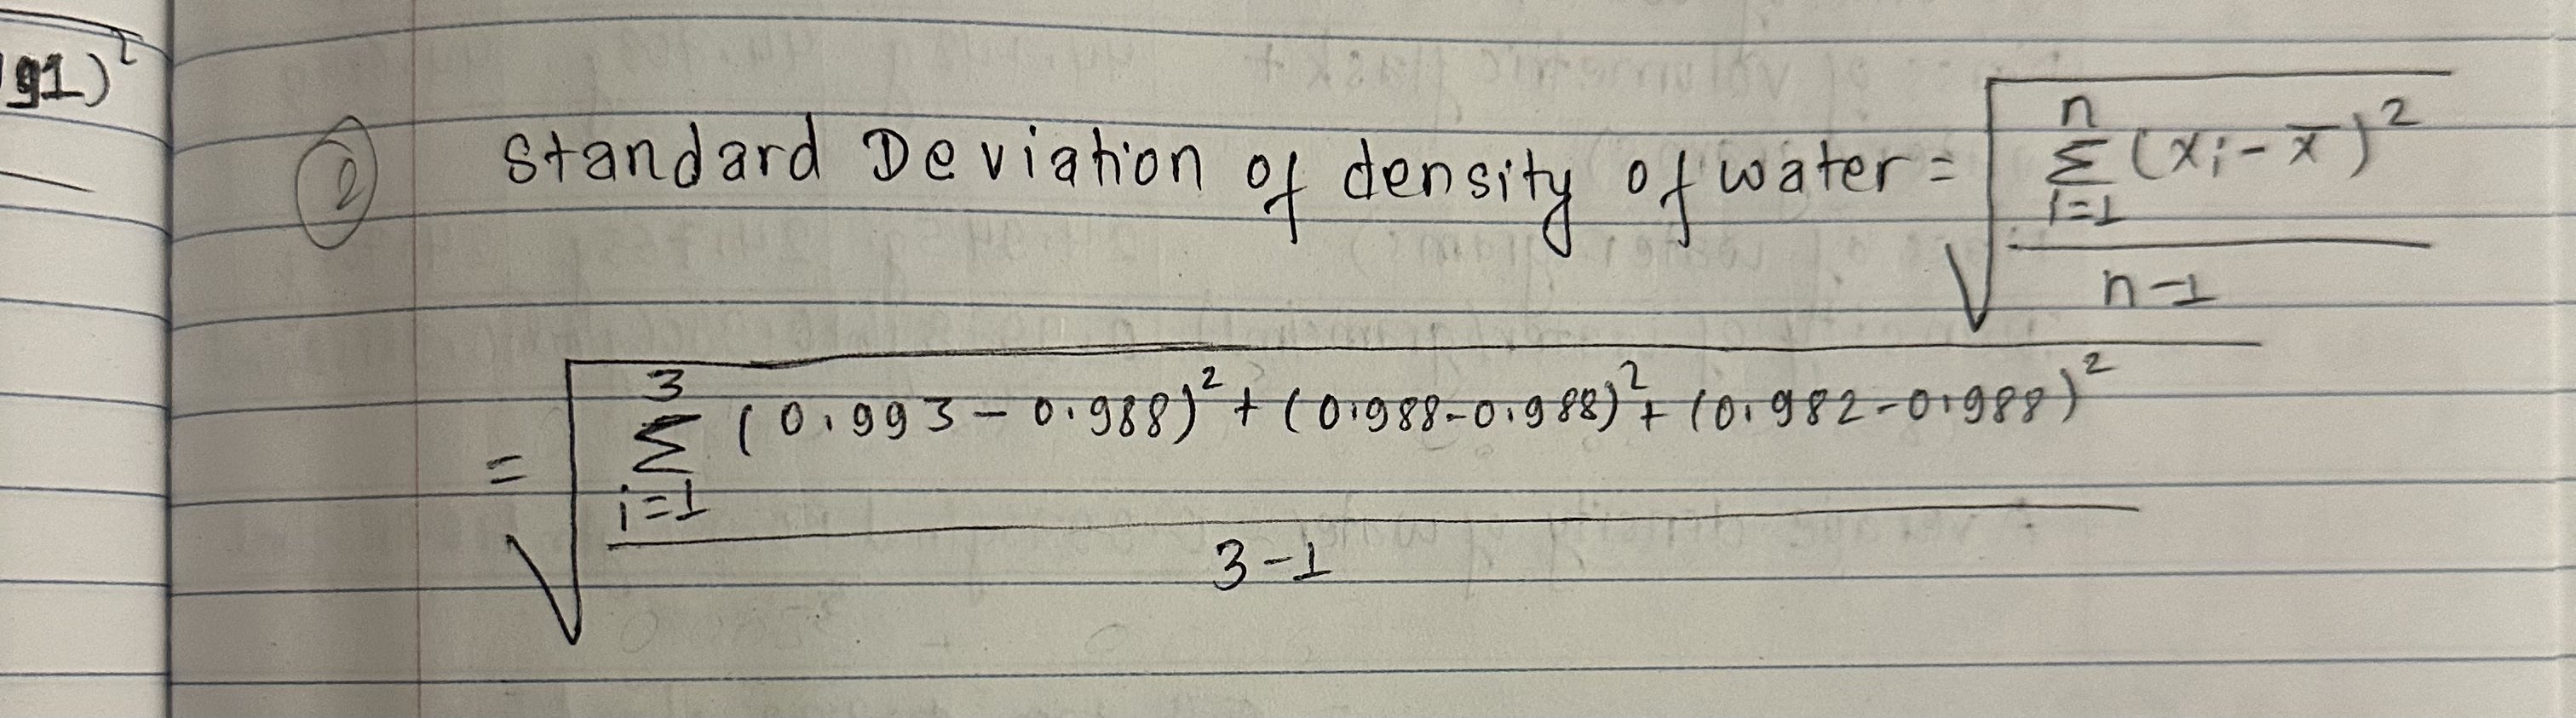 91)²
② Standard Deviation of density of water = √(n Σ i=1 (xi - x̄)² / n-1)
= √(3 Σ i=1 (0.993 - 0.988)² + (0.988-0.988)² + (0.982-0.988)² / 3-1)